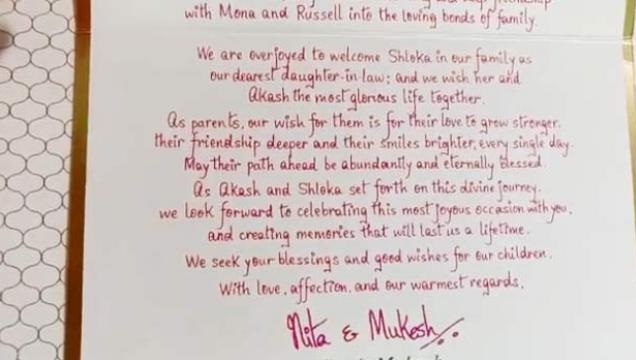 with Mona and Russell into the loving bonds of family.
We are overjoyed to welcome Shloka in our family as
our dearest daughter-in-law; and we wish her and
Akash the most glorious life together.
As parents, our wish for them is for their love to grow stronger,
their friendship deeper and their smiles brighter, every single day.
May their path ahead be abundantly and eternally blessed.
As Akash and Shloka set forth on this divine journey,
we look forward to celebrating this most joyous occasion with you,
and creating memories that will last us a lifetime.
We seek your blessings and good wishes for our children.
With love, affection, and our warmest regards,
Nita & Mukesh